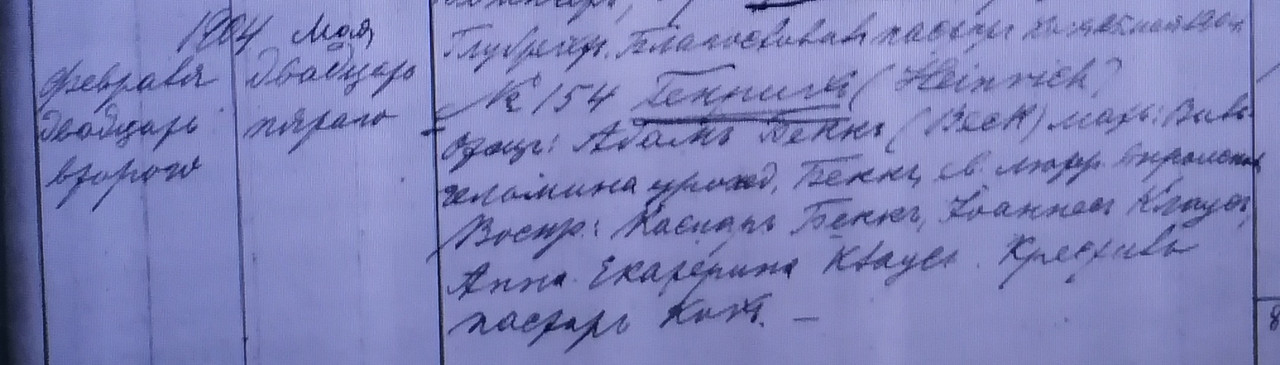 1904
Февраля
двадцать
второго
Мая
двадцать
пятого
пастор
№ 154 Генрихъ (Heinrich)
Отецъ: Адамъ Беккъ (Beck) мать: Виль-
гельмина урожд. Беккъ, ев. лютер. вѣроисп.
Воспр: Каспаръ Беккъ, Иоаннесъ Клаусъ,
Анна Екатерина Клаусъ. Крестилъ
пасторъ